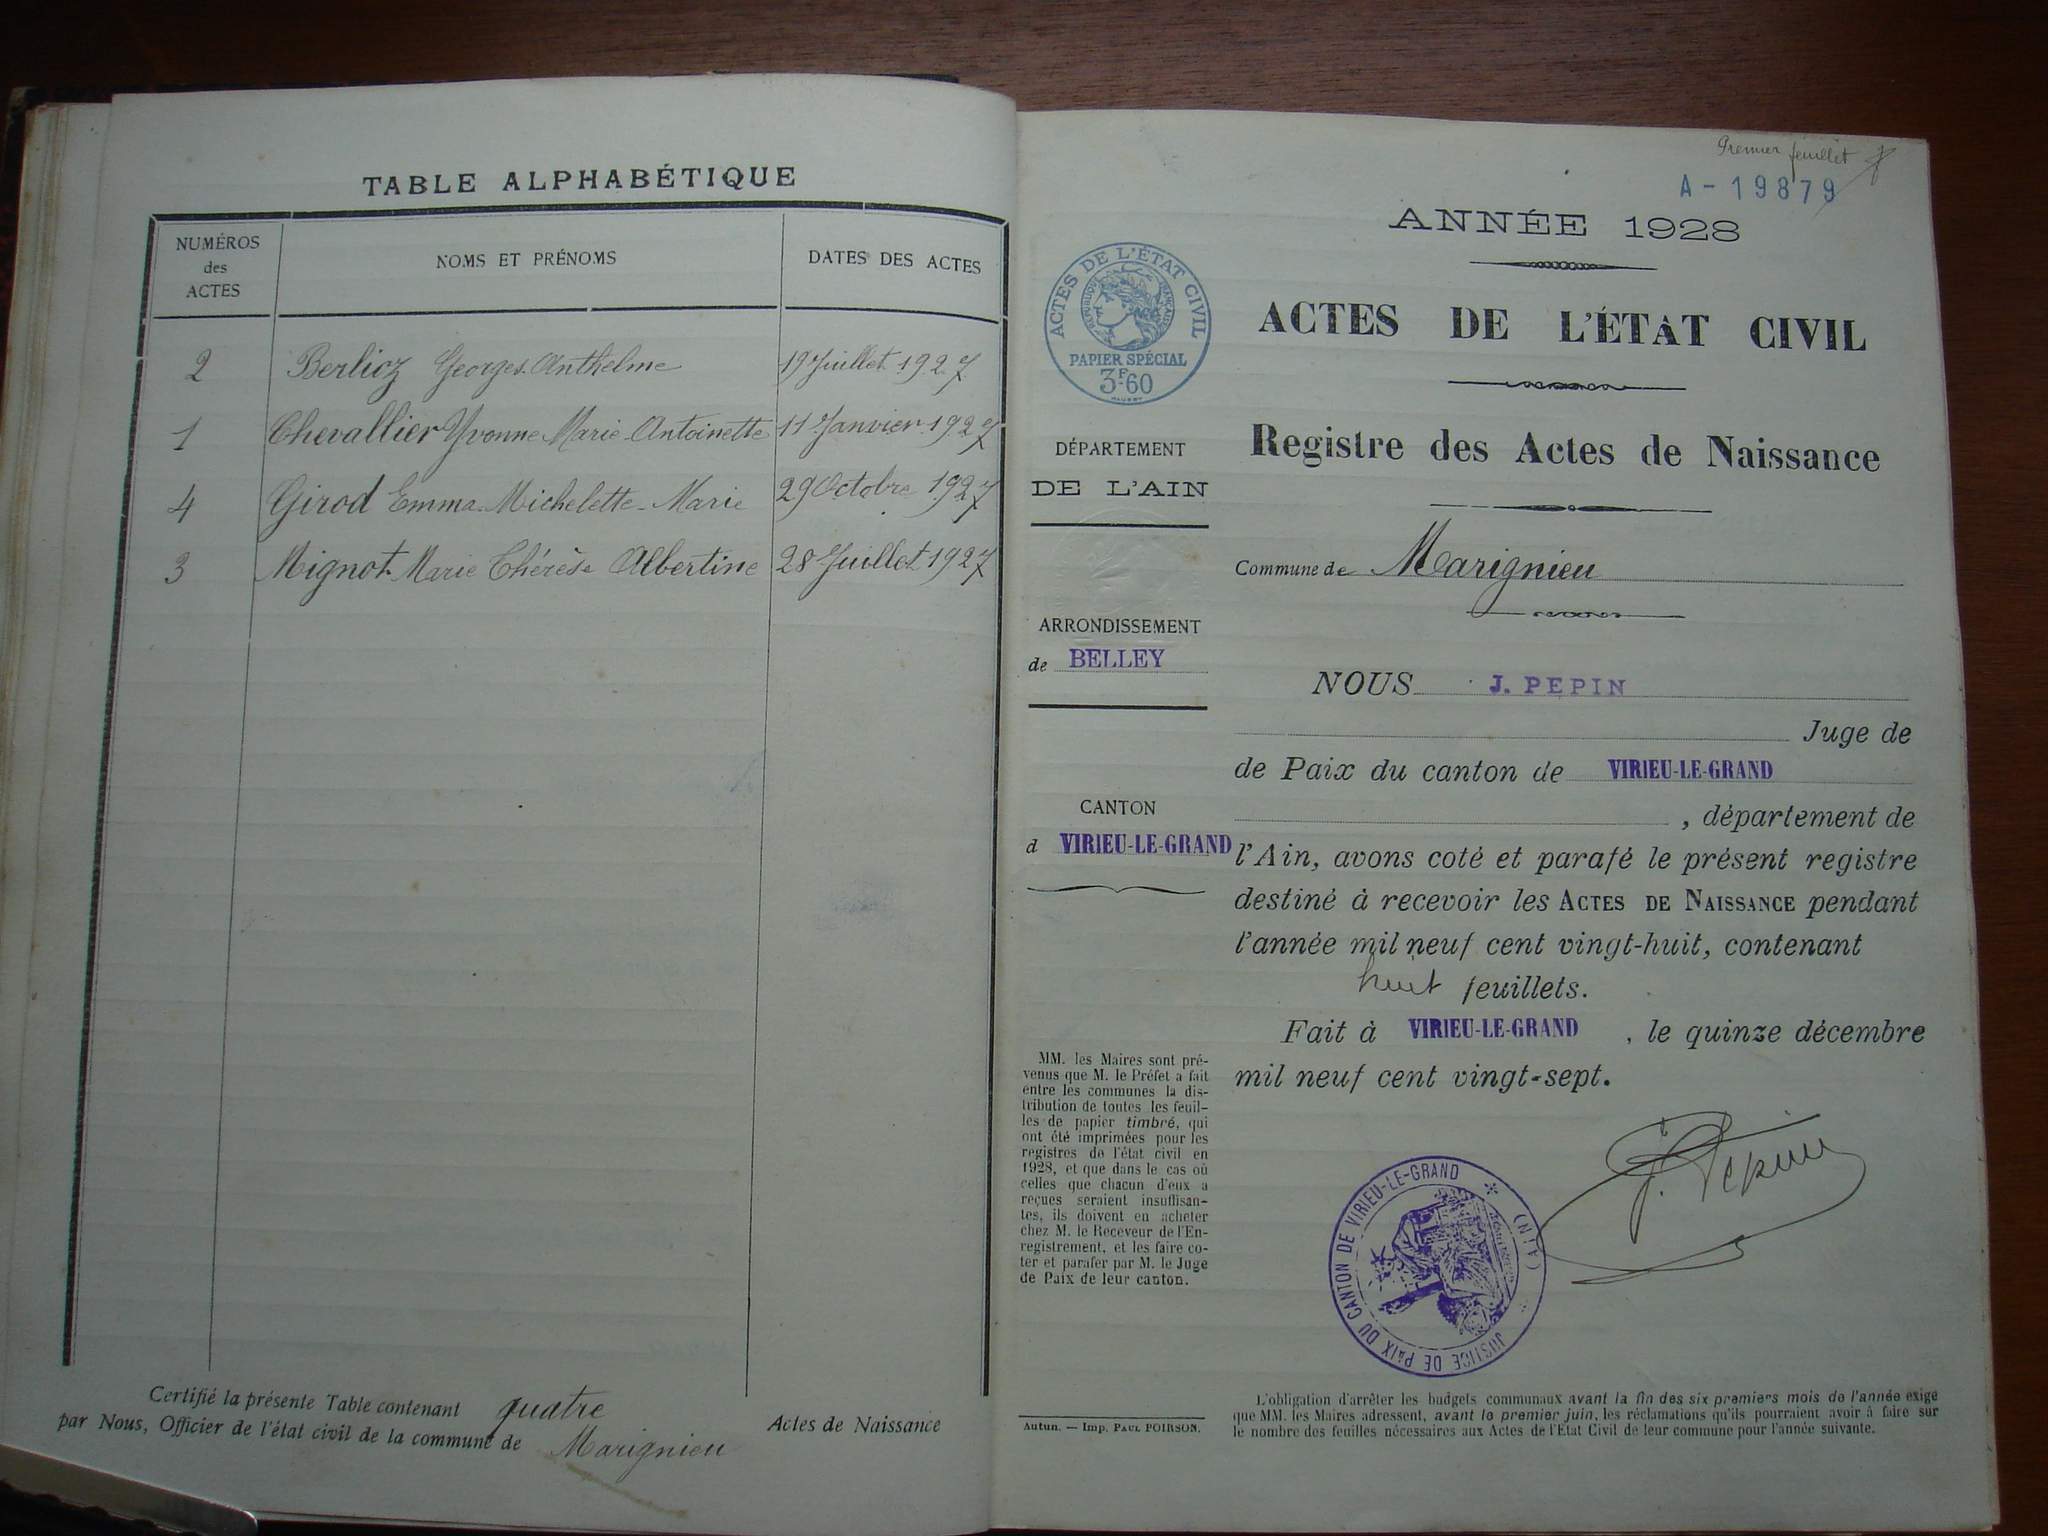 TABLE ALPHABÉTIQUE
NUMÉROS des ACTES NOMS ET PRÉNOMS DATES DES ACTES
2 Berlioz Georges Anthelme 19 Juillet 1927
1 Chevallier Yvonne Marie Antoinette 11 Janvier 1927
4 Girod Emma Michelette Marie 29 Octobre 1927
3 Mignot Marie Thérèse Albertine 28 Juillet 1927
Certifié la présente Table contenant quatre Actes de Naissance
par Nous, Officier de l'état civil de la commune de Marignieu
Premier feuillet
A-19879
ANNÉE 1928
ACTES DE L'ÉTAT CIVIL
RÉPUBLIQUE FRANÇAISE
PAPIER SPÉCIAL
3F.60
DÉPARTEMENT
DE L'AIN
ARRONDISSEMENT
de BELLEY
CANTON
d VIRIEU-LE-GRAND
MM. les Maires sont pré-
venus que M. le Préfet a fait
entre les communes la dis-
tribution de toutes les feuil-
les de papier timbré, qui
ont été imprimées pour les
registres de l'état civil en
1928, et que dans le cas où
celles que chacun d'eux a
reçues seraient insuffisan-
tes, ils doivent en acheter
chez M. le Receveur de l'En-
registrement, et les faire co-
ter et parafer par M. le Juge
de Paix de leur canton.
Autun. — Imp. PAUL POIRSON.
ACTES DE L'ÉTAT CIVIL
Registre des Actes de Naissance
Commune de Marignieu
NOUS J. PEPIN
Juge de
de Paix du canton de VIRIEU-LE-GRAND
, département de
l'Ain, avons coté et parafé le présent registre
destiné à recevoir les ACTES DE NAISSANCE pendant
l'année mil neuf cent vingt-huit, contenant
huit feuillets.
Fait à VIRIEU-LE-GRAND, le quinze décembre
mil neuf cent vingt-sept.
J. Pepin
JUSTICE DE PAIX DU CANTON DE VIRIEU-LE-GRAND * (AIN)
L'obligation d'arrêter les budgets communaux avant la fin des six premiers mois de l'année exige
que MM. les Maires adressent, avant le premier juin, les réclamations qu'ils pourraient avoir à faire sur
le nombre des feuilles nécessaires aux Actes de l'Etat Civil de leur commune pour l'année suivante.